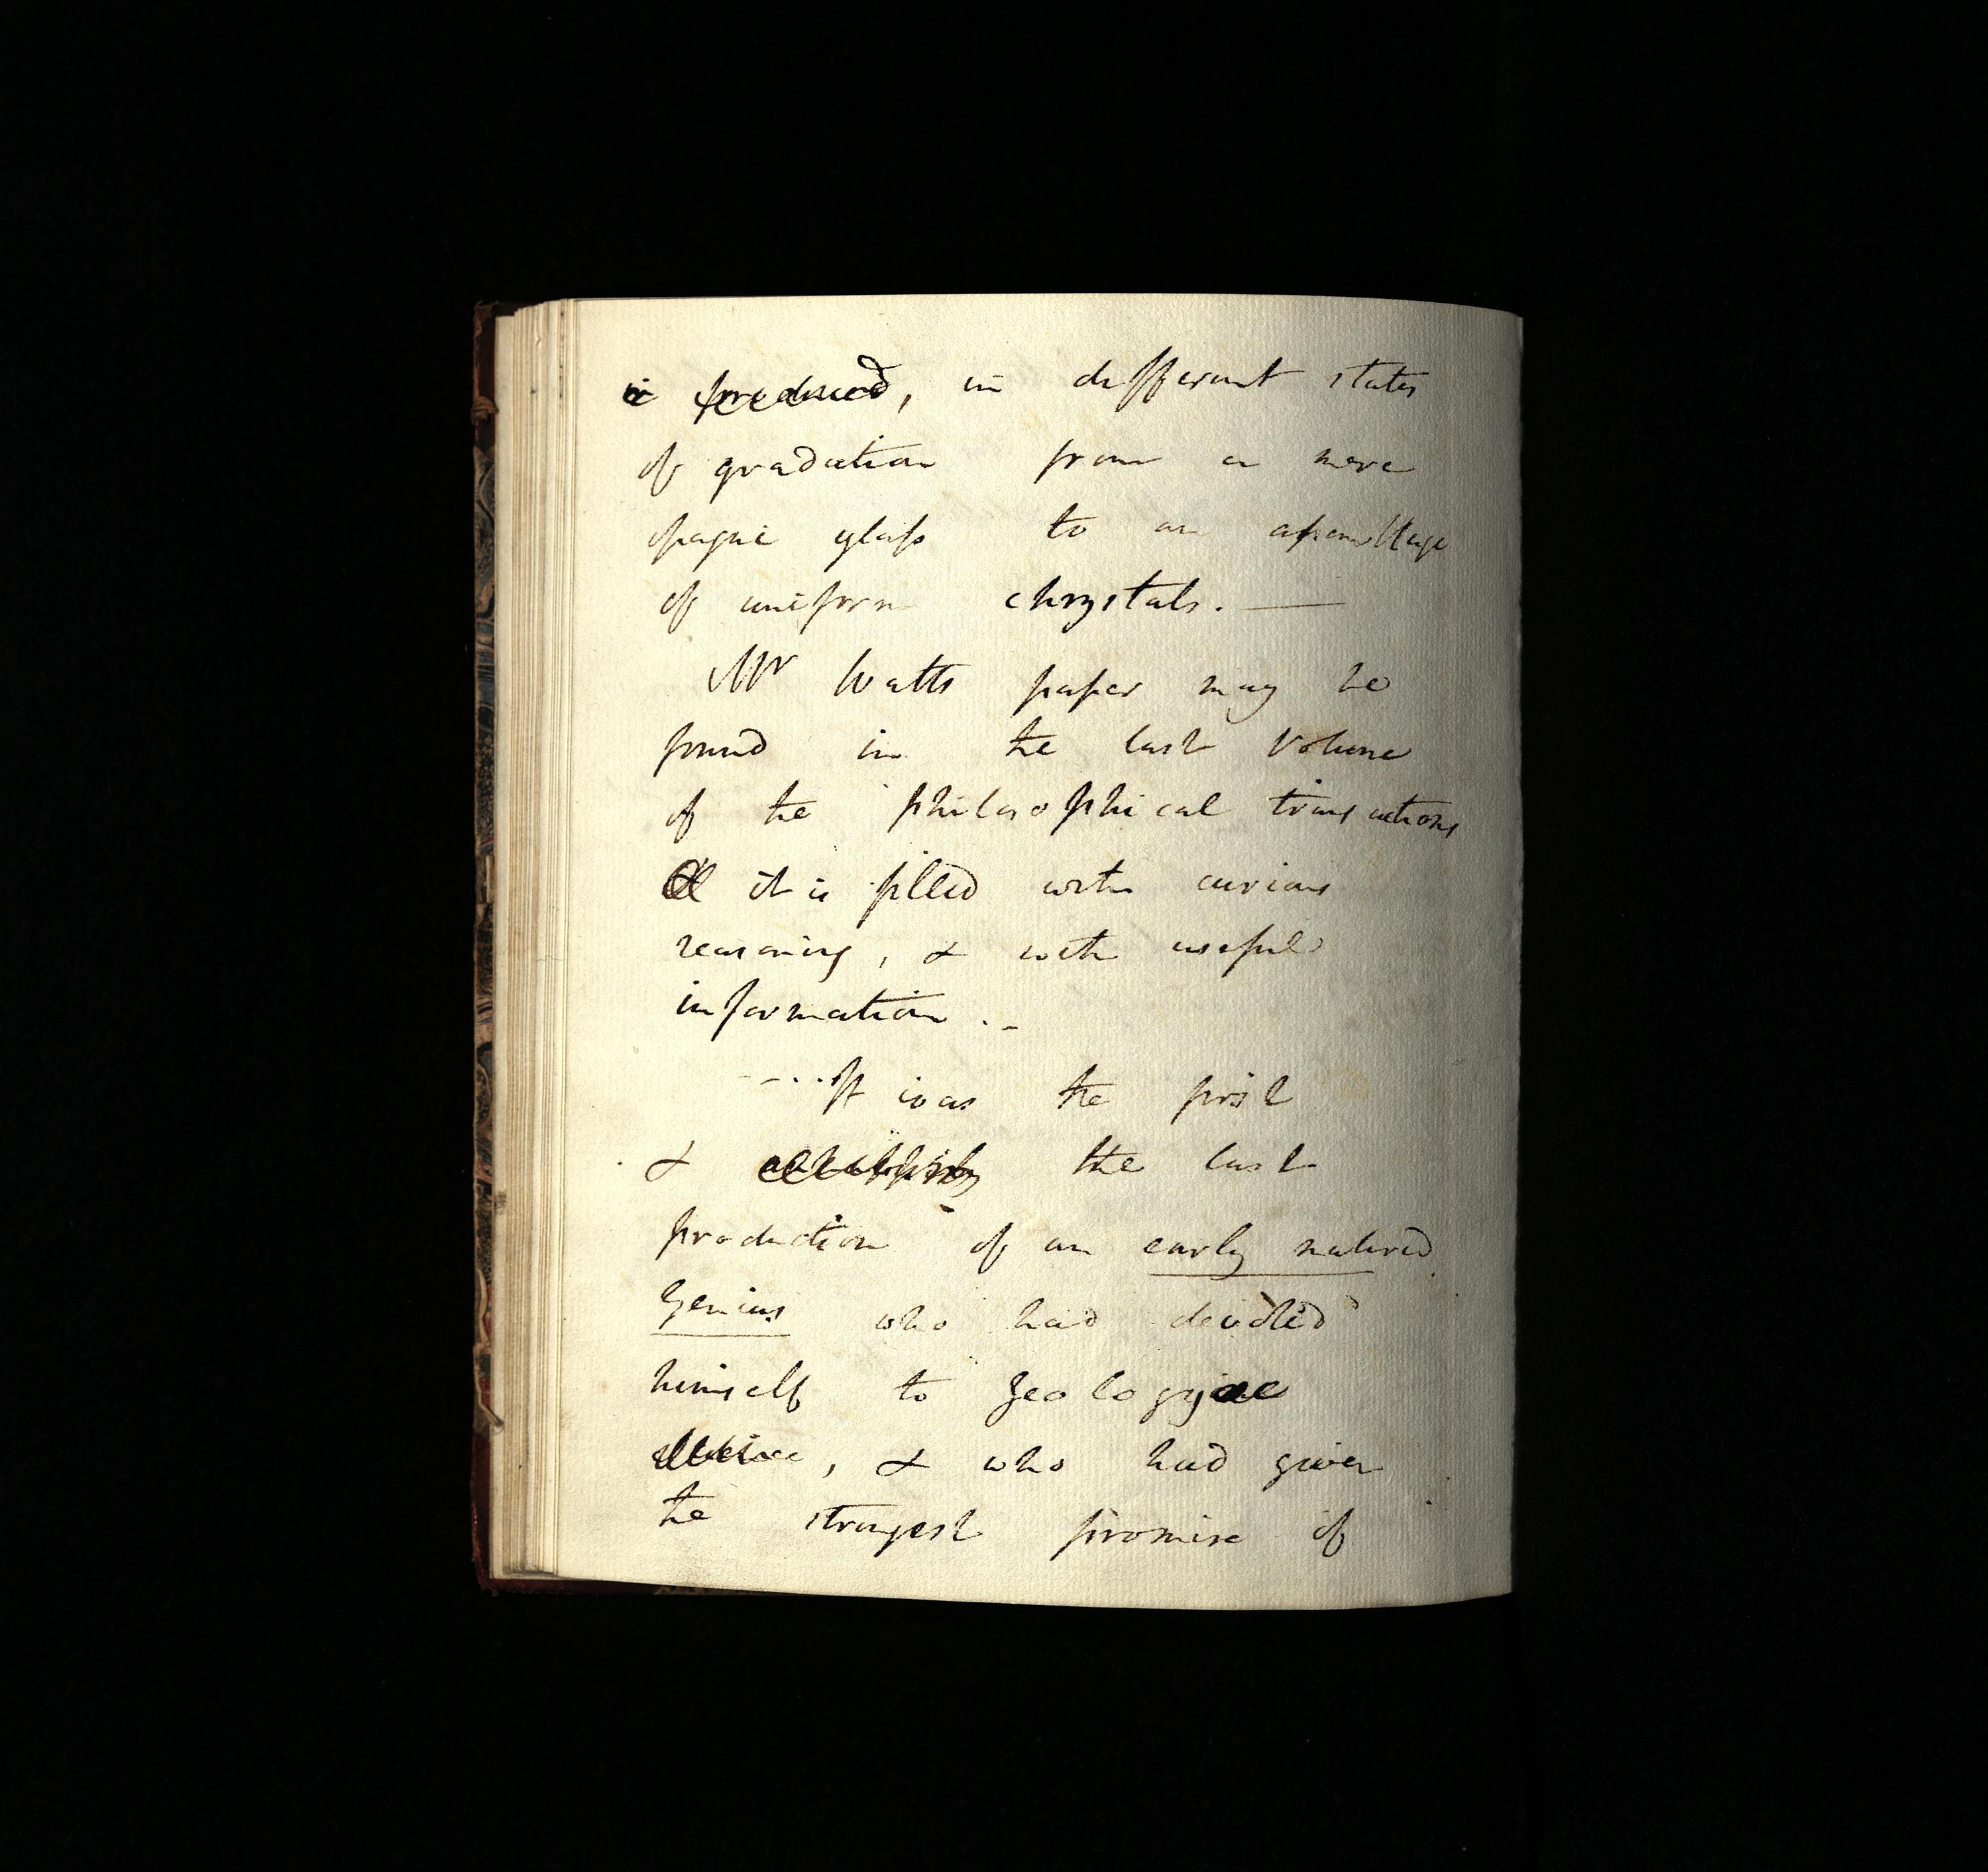 is produced, in different states
of gradation from a mere
opaque glass to an assemblage
of uniform chrystals. —
Mr Watts paper may be
found in the last Volume
of the philosophical transactions
it is filled with curious
reasoning, & with useful
information. -
It was the first
& the last
production of an early natured
Genius who had devoted
himself to geology
, & who had given
the strongest promise of